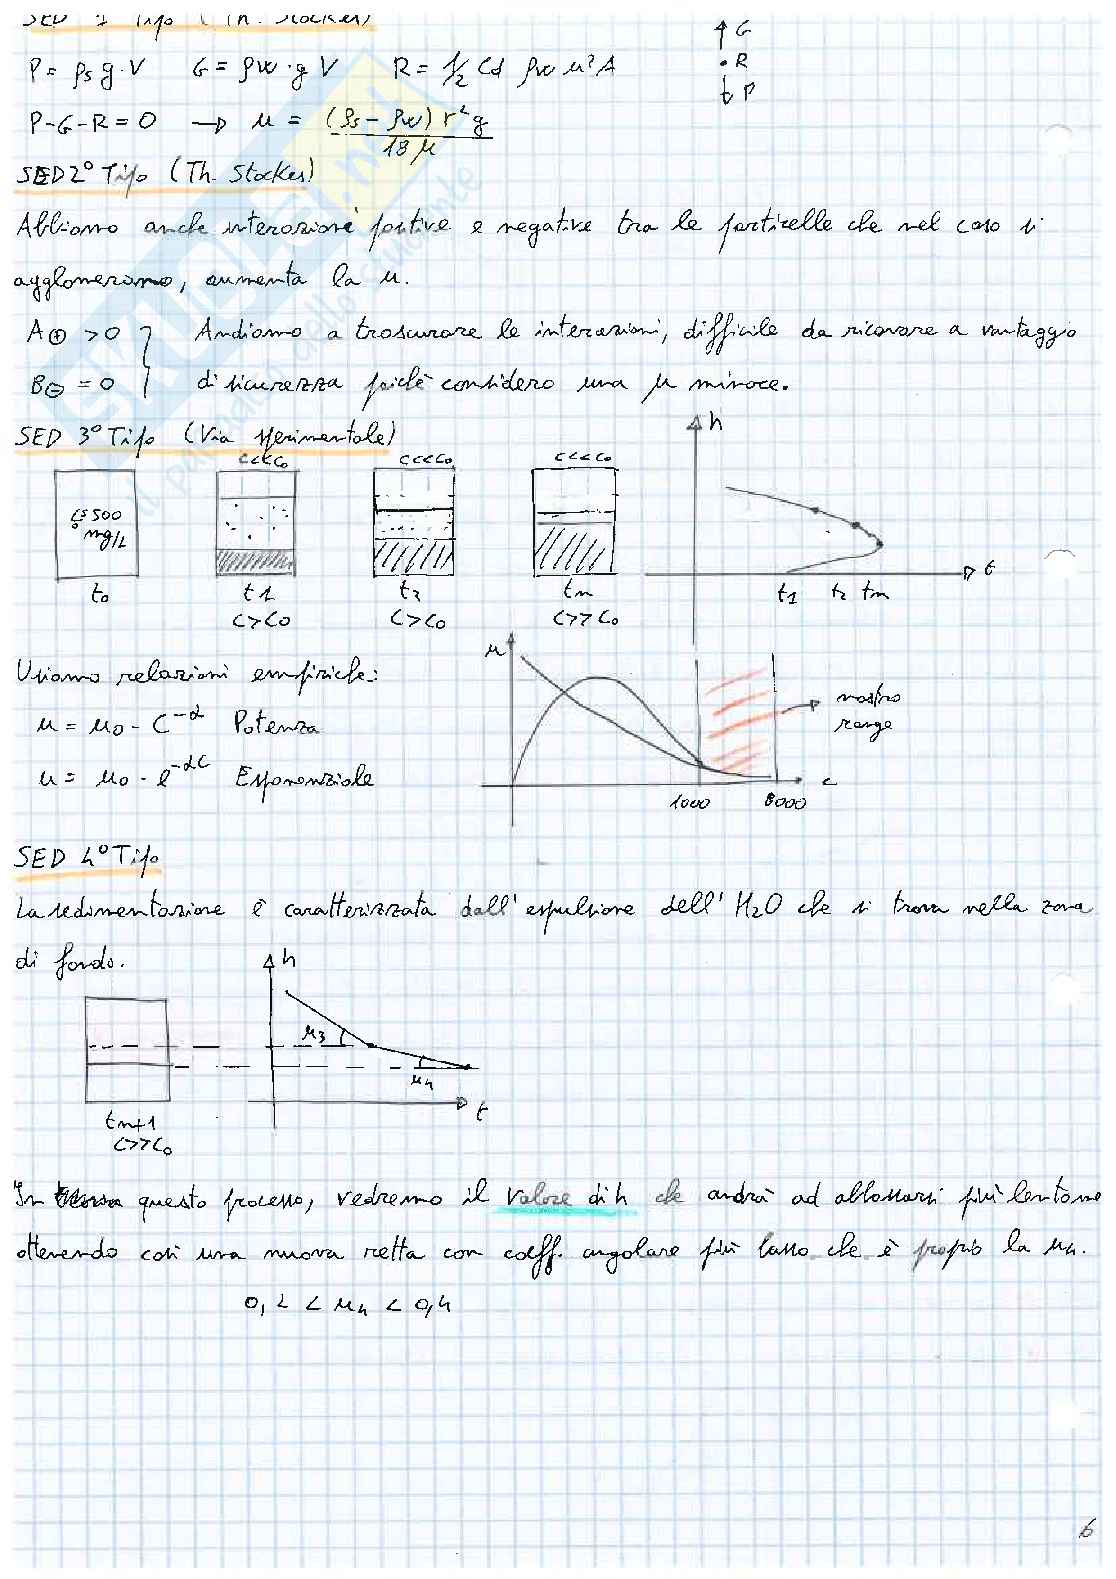 SED 1° Tipo (Th. Stockes)
P = ρs g · V G = ρw · g V R = 1/2 Cd ρw u² A
↑ G
• R
↓ P
P-G-R = 0 → u = (ρs - ρw) r² g / 18 μ
SED 2° Tipo (Th. Stockes)
Abbiamo anche interazione positive e negative tra le particelle che nel caso si
agglomerano, aumenta la u.
A⊕ > 0 } Andiamo a trascurare le interazioni, difficile da ricavare a vantaggio
B⊖ = 0 } di sicurezza poichè considero una u minore.
SED 3° Tipo (Via sperimentale)
C<<C0 C<<C0 C<<C0
500
mg/L
t0 t1 t2 tn
C>C0 C>C0 C>>C0
h
t1 t2 tn t
Usiamo relazioni empiriche:
u = u0 - C^-α Potenza
u = u0 · e^-αC Esponenziale
u
1000 8000 c
nostro
range
SED 4° Tipo
La sedimentazione è caratterizzata dall' espulsione dell' H2O che si trova nella zona
di fondo.
h
u3
u4
t
tn+1
C>>C0
In questo processo, vedremo il valore di h che andrà ad abbassarsi più lentame
ottenendo così una nuova retta con coeff. angolare più basso che è proprio la u4.
0,2 < u4 < 0,4
6